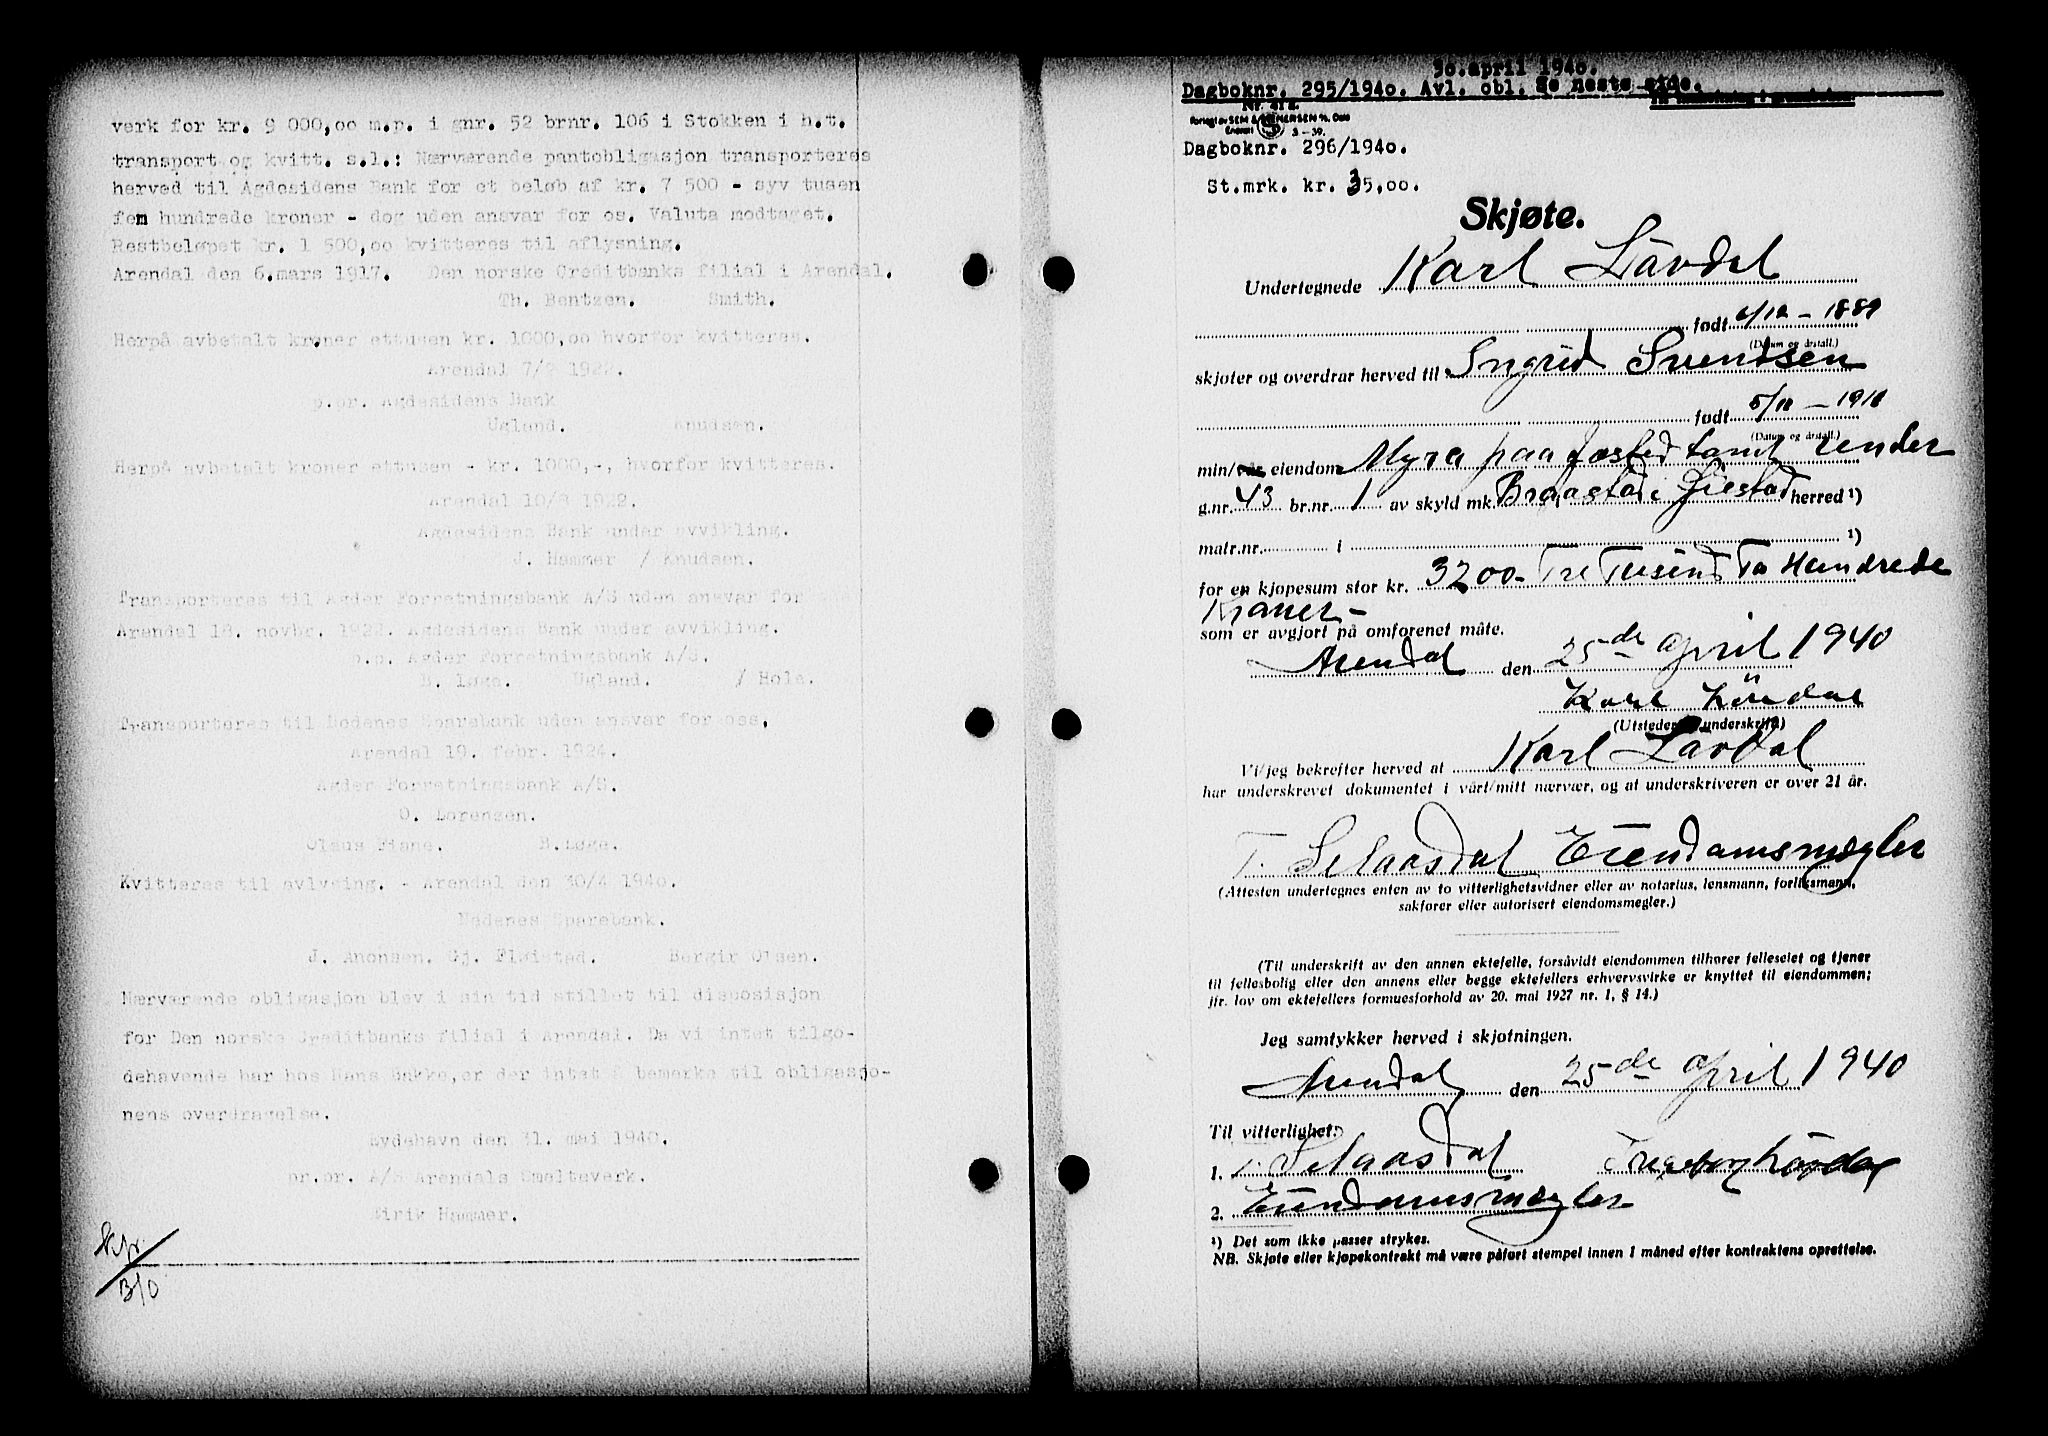 verk for kr. 9 000,oo m.p. i gnr. 52 brnr. 106 i Stokken i h.t.
transport og kvitt. s.l.: Nærværende pantobligasjon transporteres
herved til Agdesidens Bank for et beløb af kr. 7 500 - syv tusen
fem hundrede kroner - dog uden ansvar for os. Valuta modtaget.
Restbeløpet kr. 1 500,oo kvitteres til aflysning.
Arendal den 6.mars 1917. Den norske Creditbanks filial i Arendal.
Th. Bentzen. Smith.
Herpå avbetalt kroner ettusen kr. 1000,oo hvorfor kvitteres.
Arendal 7/2 1922.
p.pr. Agdesidens Bank
Ugland. Knudsen.
Herpå avbetalt kroner ettusen - kr. 1000,-, hvorfor kvitteres.
Arendal 10/8 1922.
Agdesidens Bank under avvikling.
J. Hammer / Knudsen.
Transporteres til Agder Forretningsbank A/S uden ansvar for
Arendal 18. novbr. 1922. Agdesidens Bank under avvikling.
p.p. Agder Forretningsbank A/S.
B. Løge. Ugland. / Hole.
Transporteres til Nedenes Sparebank uden ansvar for oss.
Arendal 19. febr. 1924.
Agder Forretningsbank A/S.
O. Lorensen.
Olaus Fiane. B.Løge.
Kvitteres til avlysing. - Arendal den 30/4 1940.
Nedenes Sparebank.
J. Anonsen. Gj. Fløistad. Bergir Olsen.
Nærværende obligasjon blev i sin tid stillet til disposisjon
for Den norske Creditbanks filial i Arendal. Da vi intet tilgo-
dehavende har hos Hans Bakke, er der intet å bemerke til obligasjo-
nens overdragelse.
Eydehavn den 31. mai 1940.
pr.pr. A/S Arendals Smelteverk.
Eirik Hammer.
30.april 1940.
Dagboknr. 295/1940. Avl. obl. Se neste side.
Nr. 41 a.
Dagboknr. 296/1940.
St.mrk. kr. 35,oo.
Skjøte.
Undertegnede Karl Lövdal
født 6/12 - 1889
(Datum og årstall.)
skjøter og overdrar herved til Ingrid Svendsen
født 5/11 - 1911
(Datum og årstall.)
min/vår eiendom Myra paa fæsted tomt under
g.nr. 43 br.nr. 1 av skyld mk. Braastad i Øiestad herred ¹)
matr.nr. i ¹)
for en kjøpesum stor kr. 3200- Tre Tusind To Hundrede
Kroner -
som er avgjort på omforenet måte.
Arendal den 25de April 1940
Karl Lövdal
(Utstederens underskrift)
Vi/jeg bekrefter herved at Karl Lövdal
har underskrevet dokumentet i vårt/mitt nærvær, og at underskriveren er over 21 år.
T. Selaasdal Eiendomsmægler
(Attesten undertegnes enten av to vitterlighetsvidner eller av notarius, lensmann, forliksmann,
sakfører eller autorisert eiendomsmegler.)
(Til underskrift av den annen ektefelle, forsåvidt eiendommen tilhører felleseiet og tjener
til fellesbolig eller den annens eller begge ektefellers erhvervsvirke er knyttet til eiendommen;
jfr. lov om ektefellers formuesforhold av 20. mai 1927 nr. 1, § 14.)
Jeg samtykker herved i skjøtningen.
Arendal den 25de April 1940
Til vitterlighet:
1. T. Selaasdal Ingeborg Lövdal
2. Eiendomsmægler
¹) Det som ikke passer strykes.
NB. Skjøte eller kjøpekontrakt må være påført stempel innen 1 måned efter kontraktens oprettelse.